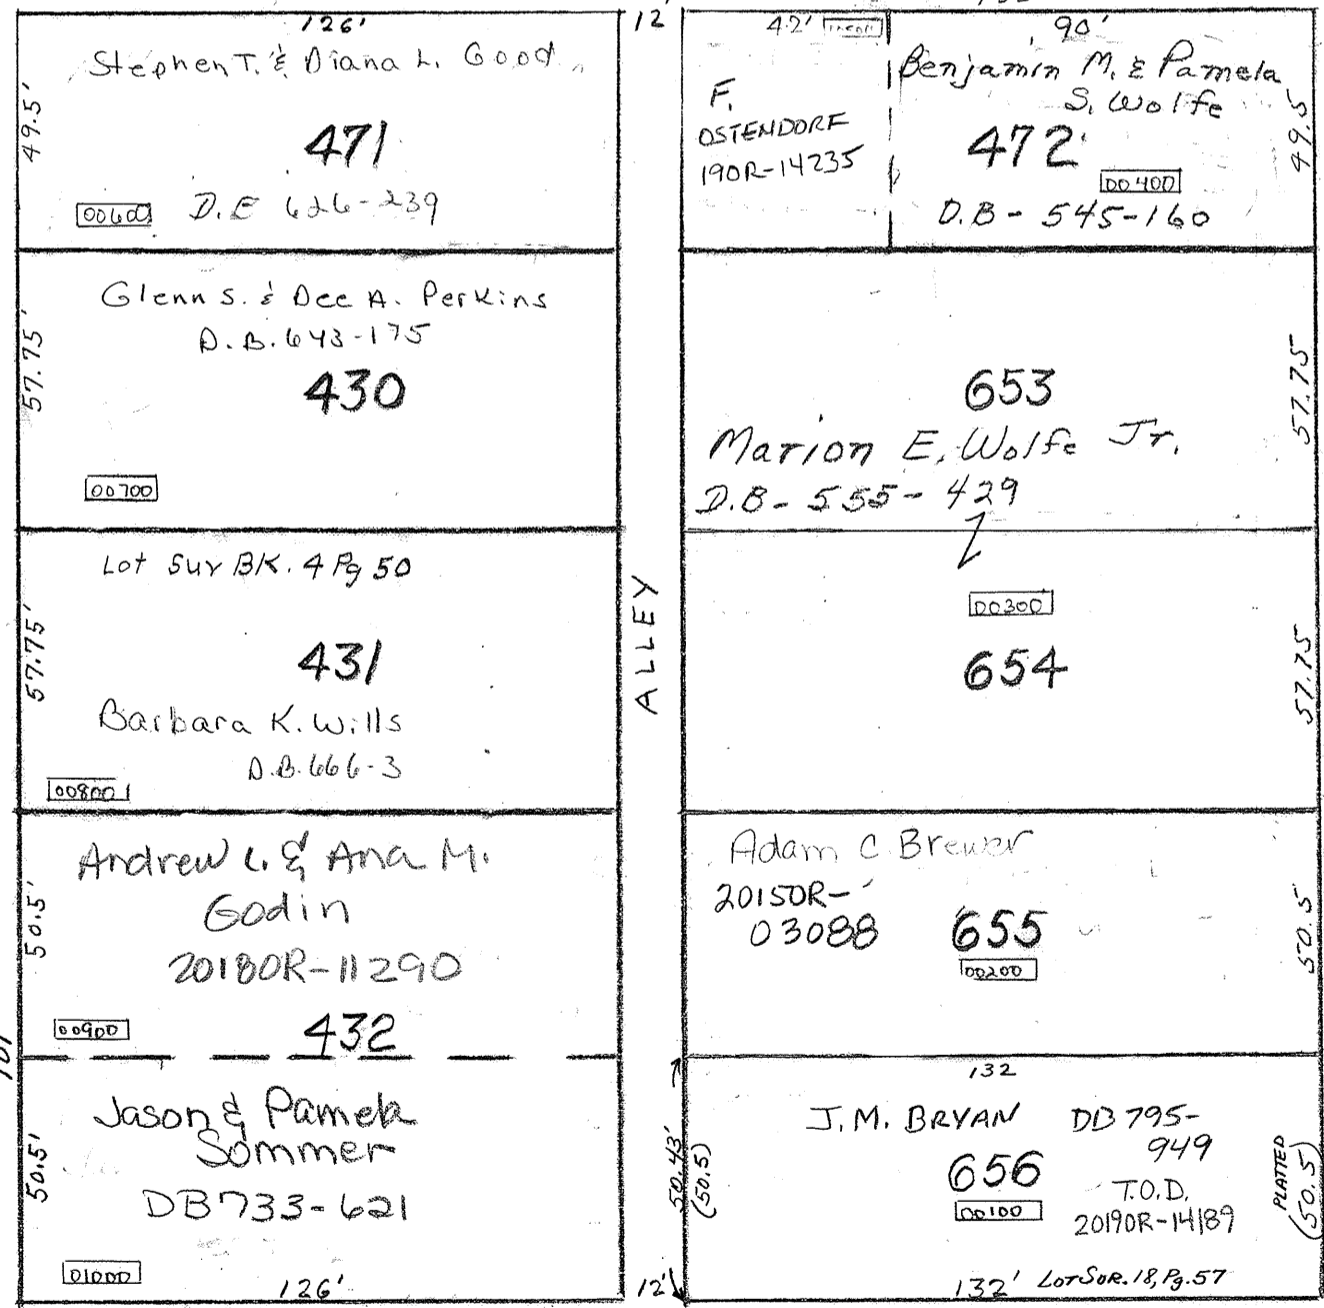 126'
Stephen T. & Diana L. Good
49.5'
471
00600
D.E 626-239
Glenn S. & Dee A. Perkins
D.B. 643-175
57.75'
430
00700
Lot Sur BK. 4 Pg 50
57.75'
431
Barbara K. Wills
D.B. 666-3
00800
Andrew L. & Ana M.
Godin
50.5'
20180R-11290
00900
432
Jason & Pamela
Sommer
50.5'
DB733-621
01000
126'
12'
ALLEY
12'
42'
90'
F.
OSTENDORF
190R-14235
Benjamin M. & Pamela
S. Wolfe
49.5
472
00400
D.B - 545-160
653
57.75
Marion E. Wolfe Jr.
D.B - 555 - 429
00300
654
57.75
Adam C Brewer
20150R-
03088
655
50.5'
00200
132
J.M. BRYAN
DB 795-
949
50.43'
(50.5)
656
00100
T.O.D.
20190R-14189
PLATTED
(50.5)
132'
LOT SUR. 18, Pg. 57